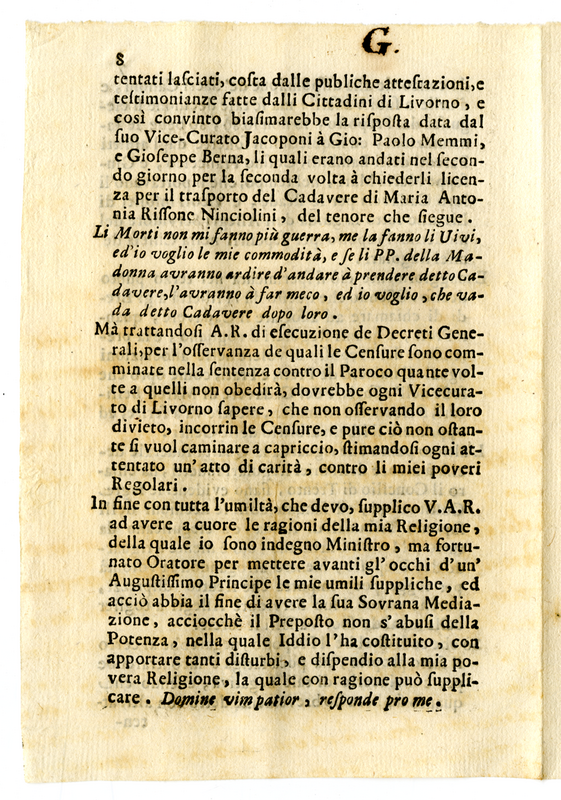 G.
8
tentati laſciati, coſta dalle publiche atteſtazioni, e
teſtimonianze fatte dalli Cittadini di Livorno, e
così convinto biaſimarebbe la riſpoſta data dal
ſuo Vice-Curato Jacoponi à Gio: Paolo Memmi,
e Gioſeppe Berna, li quali erano andati nel ſecon-
do giorno per la ſeconda volta à chiederli licen-
za per il traſporto del Cadavere di Maria Anto-
nia Riſſone Ninciolini, del tenore che ſiegue.
Li Morti non mi fanno più guerra, me la fanno li Uivi,
ed'io voglio le mie commodità, e ſe li PP. della Ma-
donna avranno ardire d'andare à prendere detto Ca-
davere, l'avranno à far meco, ed io voglio, che va-
da detto Cadavere dopo loro.
Mà trattandoſi A.R. di eſecuzione de Decreti Gene-
rali, per l'oſſervanza de quali le Cenſure ſono com-
minate nella ſentenza contro il Paroco quante vol-
te a quelli non obedirà, dovrebbe ogni Vicecura-
to di Livorno ſapere, che non oſſervando il loro
divieto, incorrin le Cenſure, e pure ciò non oſtan-
te ſi vuol caminare a capriccio, ſtimandoſi ogni at-
tentato un'atto di carità, contro li miei poveri
Regolari.
In fine con tutta l'umiltà, che devo, ſupplico V.A.R.
ad avere a cuore le ragioni della mia Religione,
della quale io ſono indegno Miniſtro, ma fortu-
nato Oratore per mettere avanti gl'occhi d'un'
Auguſtiſſimo Principe le mie umili ſuppliche, ed
acciò abbia il fine di avere la ſua Sovrana Media-
zione, acciocchè il Prepoſto non s'abuſi della
Potenza, nella quale Iddio l'ha coſtituito, con
apportare tanti diſturbi, e diſpendio alla mia po-
vera Religione, la quale con ragione può ſuppli-
care. Domine vim patior, reſponde pro me.